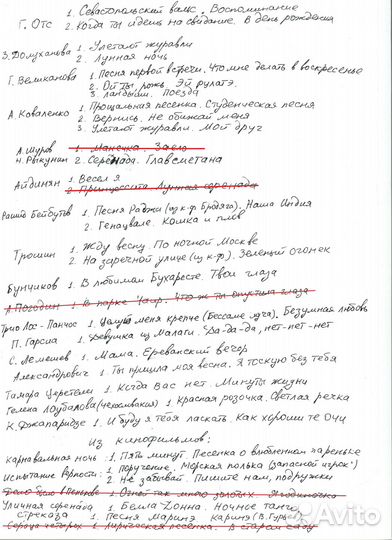 1. Севастопольский вальс. Воспоминание
Г. Отс 2. Когда ты идешь на свидание. В день рождения
З. Долуханова 1. Улетают журавли
2. Лунная ночь
Г. Великанова 1. Песня первой встречи. Что мне делать в воскресенье
2. Ой ты, рожь. Эй рулатэ.
3. Ландыши. Поезда
А. Коваленко 1. Прощальная песенка. Студенческая песня
2. Вернись. Не обижай меня
3. Улетают журавли. Мой друг
А. Шуров 1. Манечка.
Н. Рыкунин 2. Серенада. Главсметана
Айдинян 1. Весел я
2. Принцессита. Лунная серенада
Рашид Бейбутов 1. Песня Раджи (из к-ф Бродяга). Наша Индия
2. Генацвале. Кошка и плов
Трошин 1. Жду весну. По ночной Москве
2. На заречной улице (из к-ф). Зеленый огонек
Бунчиков 1. В любимом Бухаресте. Твои глаза
А. Погодин 1. В парке Чаир. Что ж ты опустила глаза
Трио Лос-Панчос 1. Целуй меня крепче (Бессаме муча). Безумная любовь
П. Гарсиа 1. Девушка из Малаги. Да-да-да, нет-нет-нет
С. Лемешев 1. Мама. Ереванский вечер
Александрович 1. Ты пришла моя весна. Я тоскую без тебя
Тамара Церетели 1. Когда Вас нет. Минуты жизни
Гелена Лоубалова (чехословакия) 1. Красная розочка. Светлая речка
К. Джапаридзе 1. И буду я тебя ласкать. Как хороши те очи
Из кинофильмов:
Карнавальная ночь 1. Пять минут. Песенка о влюбленном пареньке
Испытание верности: 1. Поручение. Морская полька (запасной игрок)
2. Не забывай. Пишите нам, подружки
Дело было в Пенькове 1. Огней так много золотых.
Уличная серенада 1. Белла Донна. Ночное танго
Стрекоза 1. Песня Маринэ Каринэ (В. Гурьев)
Сердца четырех 1. Лирическая песенка. В старом саду
Avito